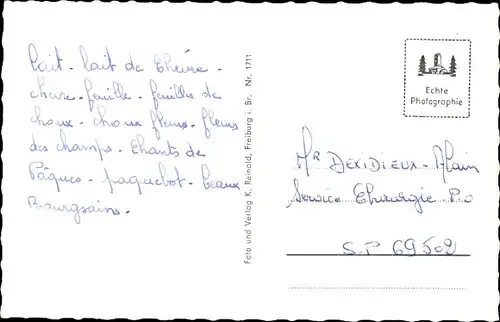 Lait - lait de Chèvre -
chèvre-feuille - feuilles de
choux - choux fleurs - fleurs
des champs - Chants de
Pâques - paquebot - beaux
Bourgeoins.
Foto und Verlag K. Reinold, Freiburg i. Br. Nr. 1711
Echte
Photographie
Mr DEXIDIEUX - Alain
Service Chirurgie P.O
S.P 69502